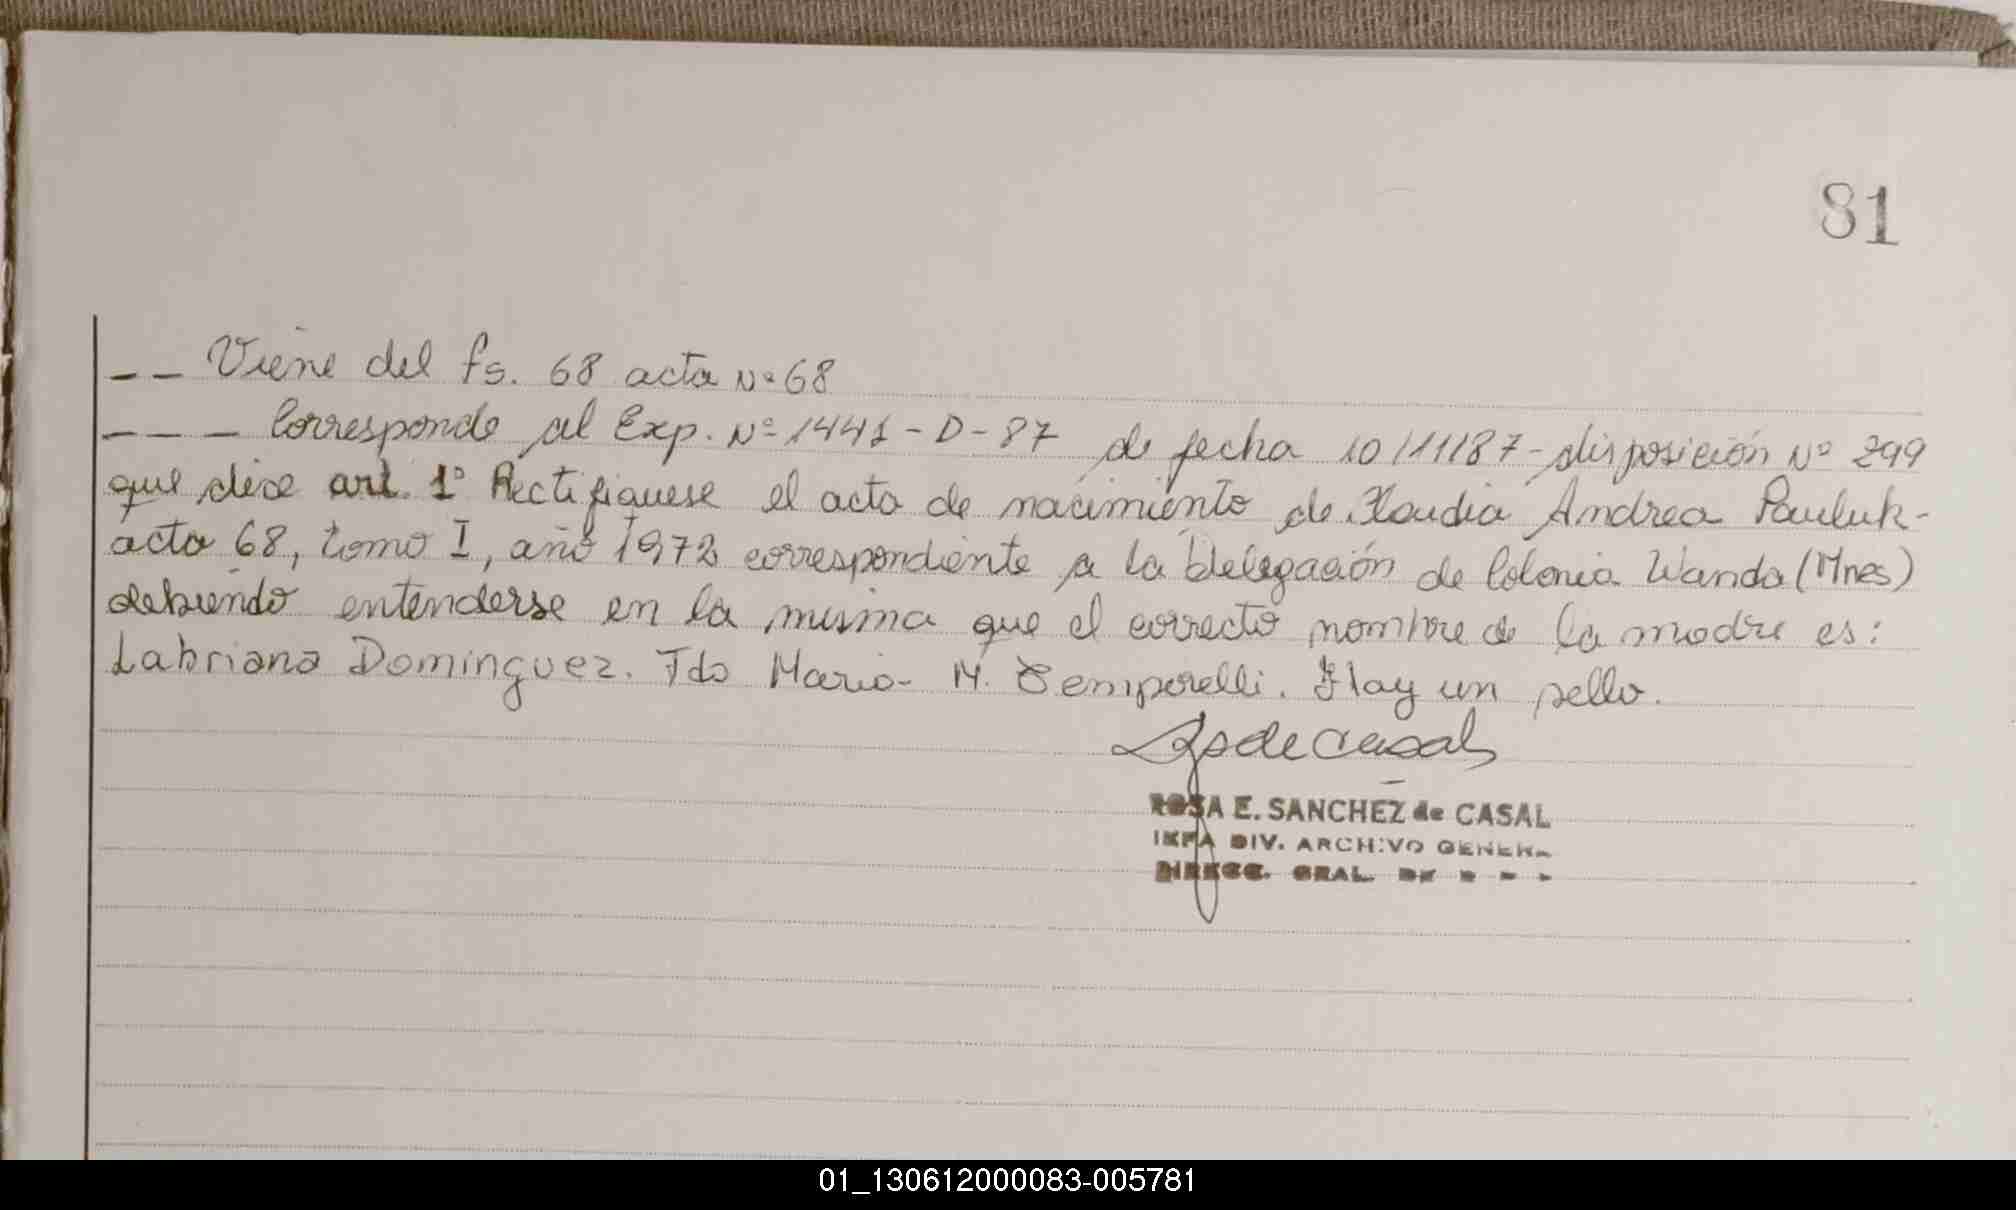 81
-- Viene del fs. 68 acta Nº 68
--- Corresponde al Exp. Nº 1441-D-87 de fecha 10/11/87 - disposición Nº 299
que dice art. 1º Rectifiquese el acta de nacimiento de Klaudia Andrea Pauluk-
acta 68, tomo I, año 1972 correspondiente a la Delegación de Colonia Wanda (Mnes)
debiendo entenderse en la misma que el correcto nombre de la madre es:
Labriana Dominguez. Fdo Mario- M. Temporelli. Hay un sello.
ROSA E. SANCHEZ de CASAL
DIV. ARCHIVO GENERAL
DIRECC. GRAL. DE
01_130612000083-005781